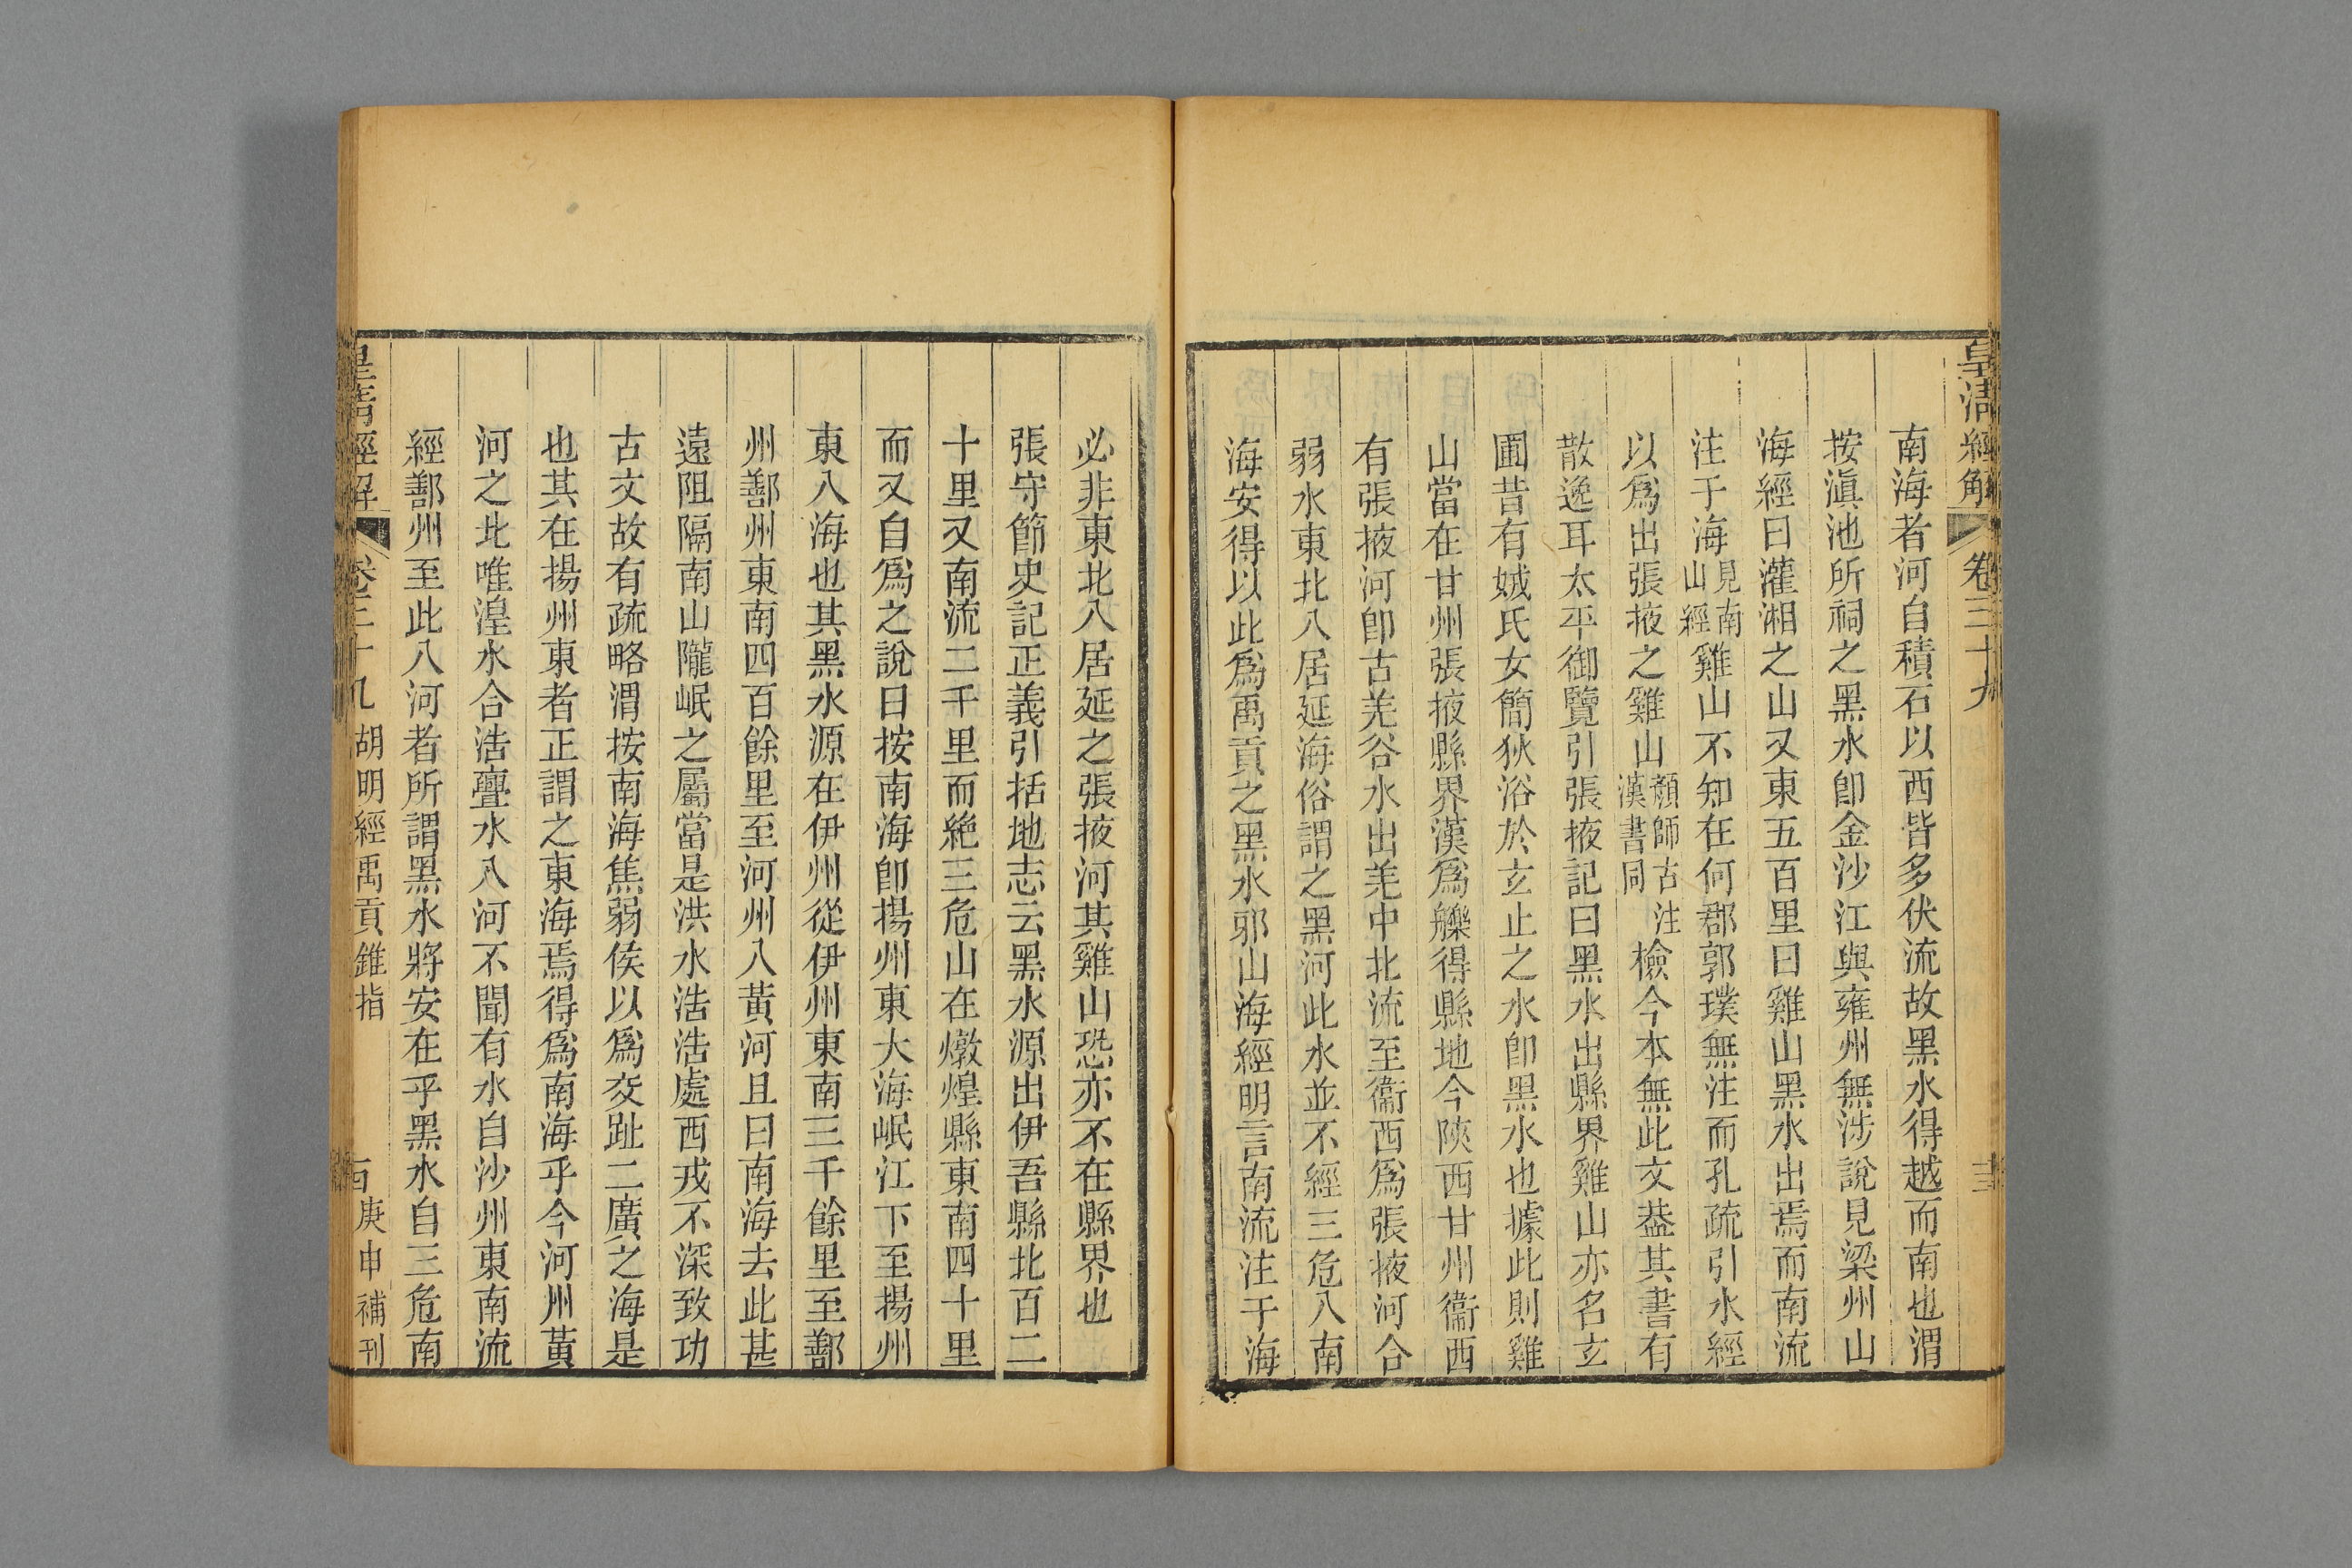 皇清經解 卷三十九 十三
南海者河自積石以西皆多伏流故黑水得越而南也渭
按滇池所祠之黑水卽金沙江與雍州無涉說見梁州山
海經曰灌湘之山又東五百里曰雞山黑水出焉而南流
注于海見南山經雞山不知在何郡郭璞無注而孔疏引水經
以爲出張掖之雞山顏師古注漢書同檢今本無此文葢其書有
散逸耳太平御覽引張掖記曰黑水出縣界雞山亦名玄
圃昔有娀氏女簡狄浴於玄止之水卽黑水也據此則雞
山當在甘州張掖縣界漢爲觻得縣地今陝西甘州衞西
有張掖河卽古羌谷水出羌中北流至衞西爲張掖河合
弱水東北入居延海俗謂之黑河此水並不經三危入南
海安得以此爲禹貢之黑水邪山海經明言南流注于海
必非東北入居延之張掖河其雞山恐亦不在縣界也
張守節史記正義引括地志云黑水源出伊吾縣北百二
十里又南流二千里而絶三危山在燉煌縣東南四十里
而又自爲之說曰按南海卽揚州東大海岷江下至揚州
東入海也其黑水源在伊州從伊州東南三千餘里至鄯
州鄯州東南四百餘里至河州入黃河且曰南海去此甚
遠阻隔南山隴岷之屬當是洪水浩浩處西戎不深致功
古文故有疏略渭按南海焦弱侯以爲交趾二廣之海是
也其在揚州東者正謂之東海焉得爲南海乎今河州黃
河之北唯湟水合浩亹水入河不聞有水自沙州東南流
經鄯州至此入河者所謂黑水將安在乎黑水自三危南
皇清經解 卷三十九 胡明經禹貢錐指 庚申補刊